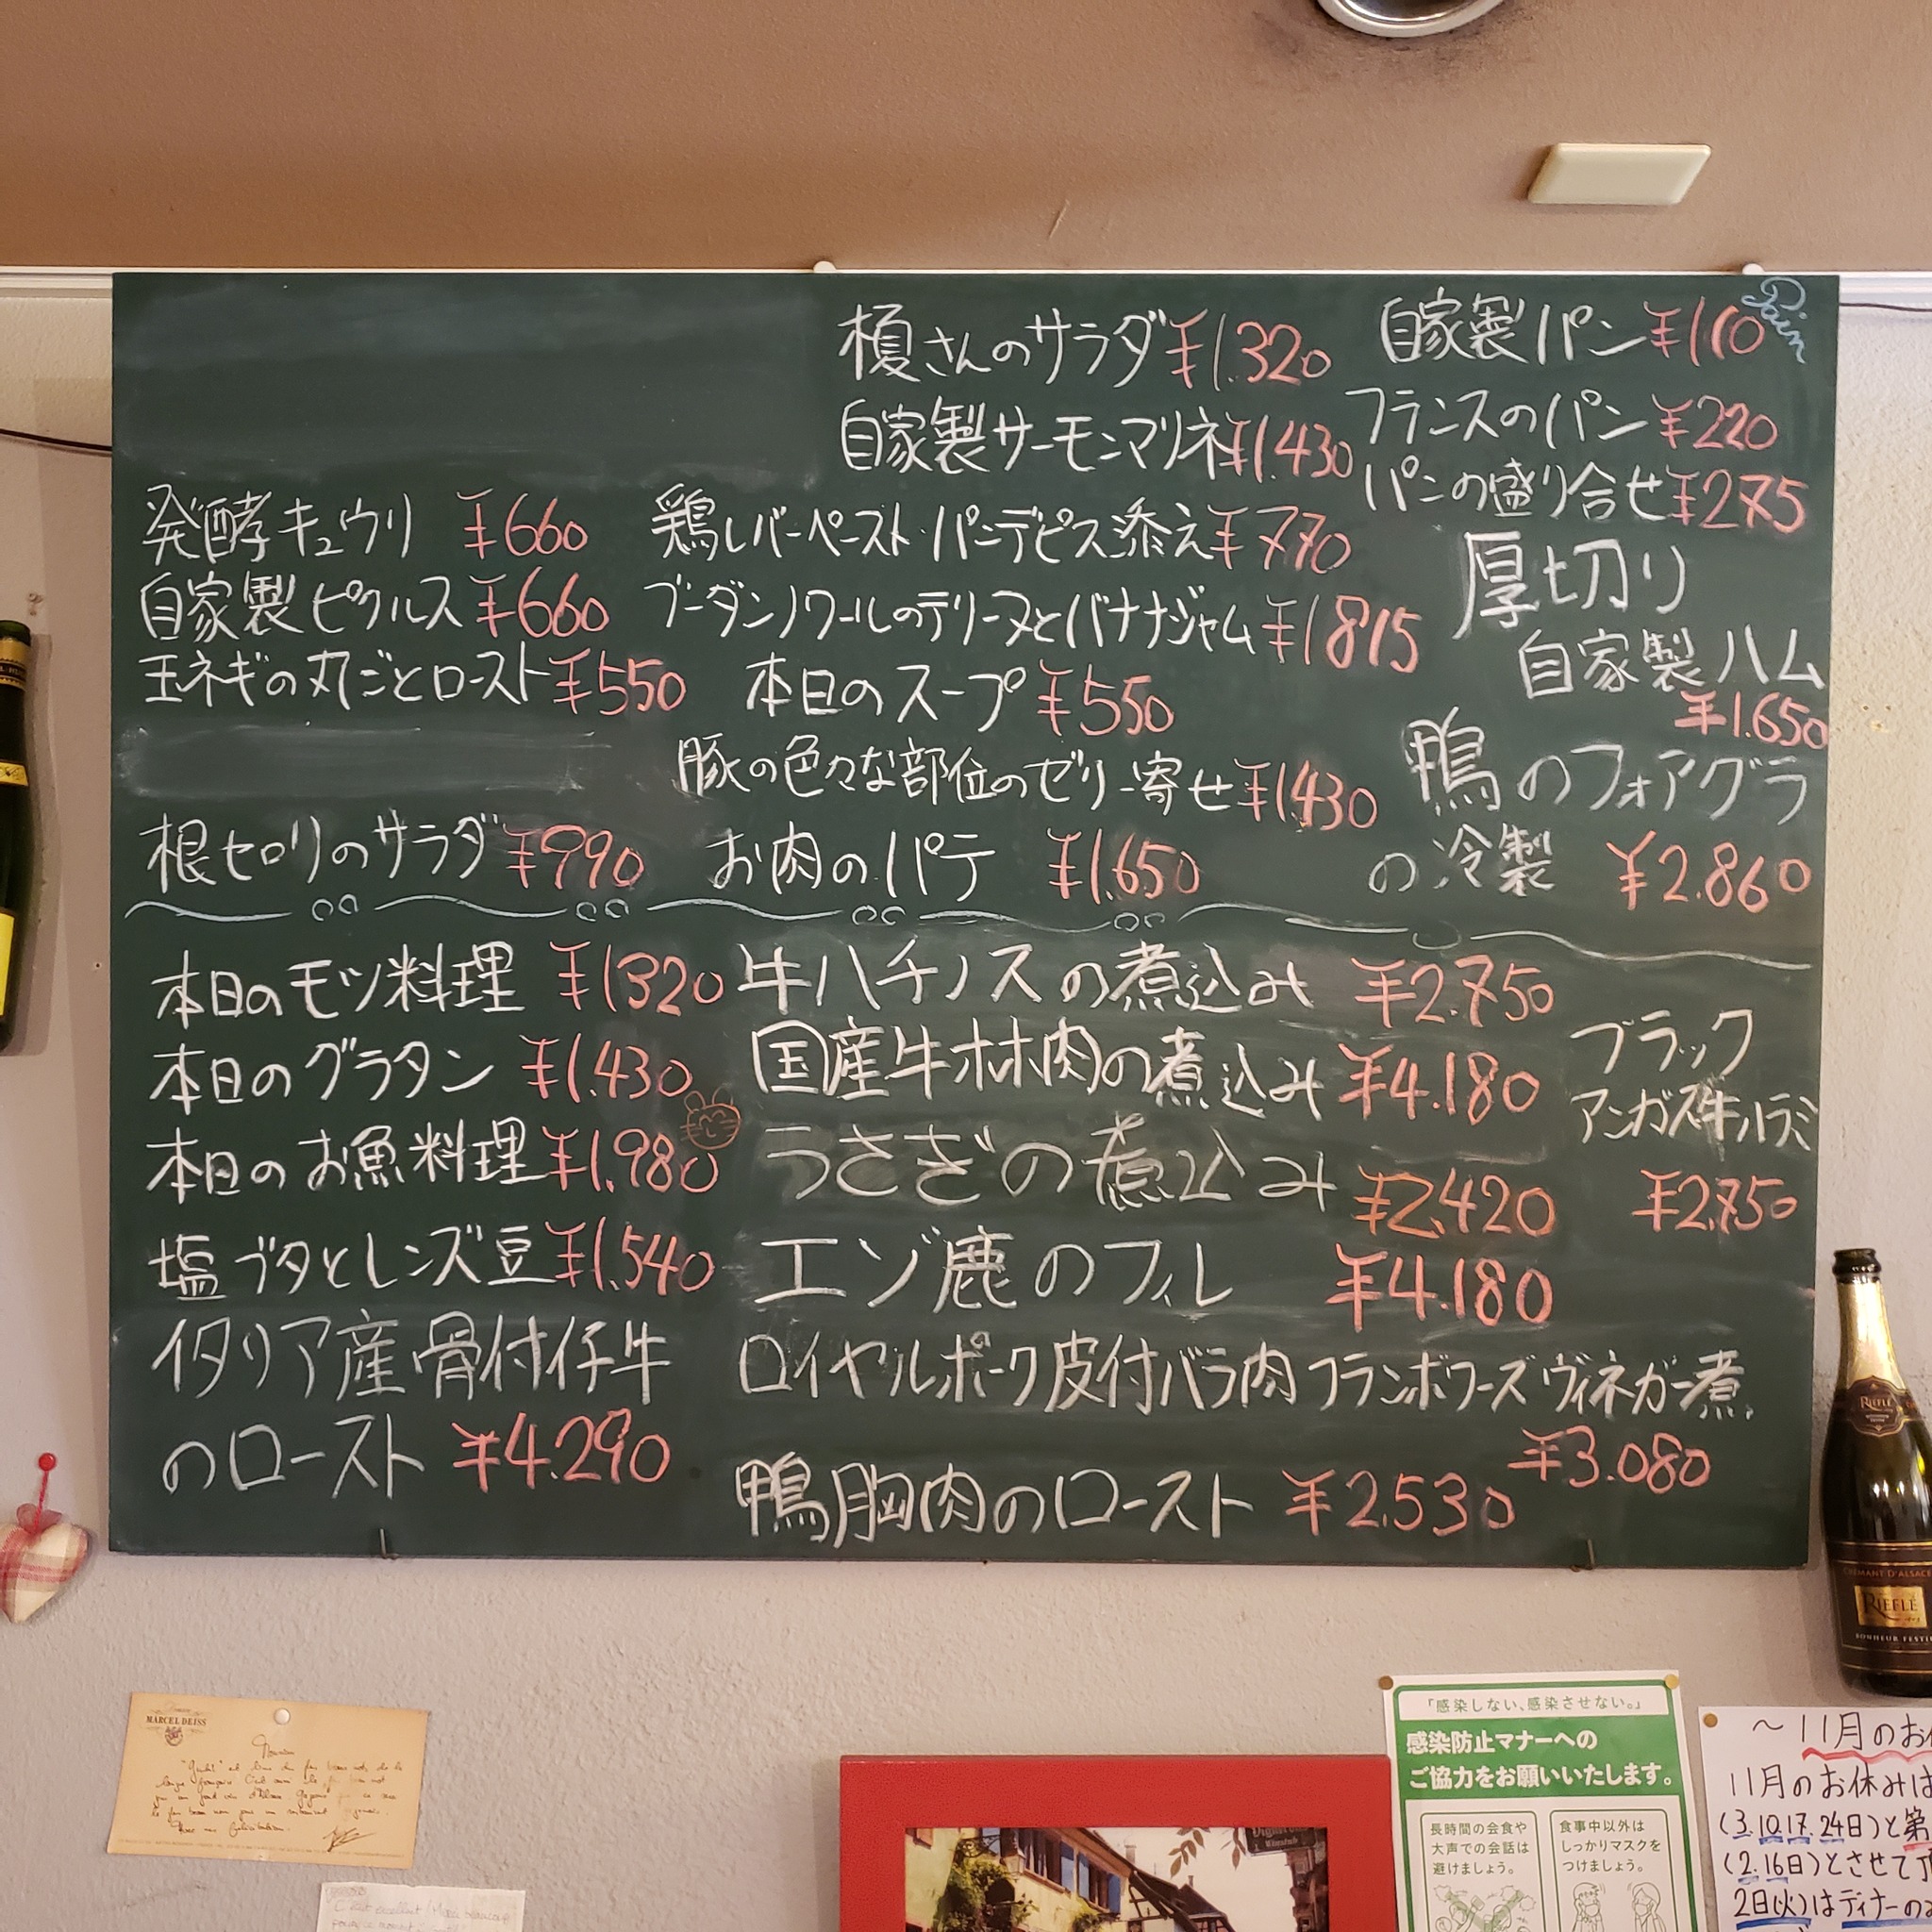 Pain
榎さんのサラダ ¥1.320
自家製パン ¥110
自家製サーモンマリネ ¥1.430
フランスのパン ¥220
パンの盛り合せ ¥275
発酵キュウリ ¥660
鶏レバーペースト・パンデピス添え ¥770
厚切り
自家製ハム
¥1.650
自家製ピクルス ¥660
ブーダンノワールのテリーヌとバナナジャム ¥1815
玉ネギの丸ごとロースト ¥550
本日のスープ ¥550
豚の色々な部位のゼリー寄せ ¥1430
鴨のフォアグラ
の冷製 ¥2.860
根セロリのサラダ ¥990
お肉のパテ ¥1.650
本日のモツ料理 ¥1320
本日のグラタン ¥1.430
本日のお魚料理 ¥1.980
塩ブタとレンズ豆 ¥1.540
イタリア産骨付仔牛
のロースト ¥4.290
牛ハチノスの煮込み ¥2.750
国産牛ホホ肉の煮込み ¥4.180
うさぎの煮込み ¥2.420
エゾ鹿のフィレ ¥4.180
ブラック
アンガス牛ハラミ
¥2.750
ロイヤルポーク皮付バラ肉フランボワーズヴィネガー煮
¥3.080
鴨胸肉のロースト ¥2.530
RIEFLÉ
CRÉMANT D'ALSACE
RIEFLÉ
BONHEUR FESTI
MARCEL DEISS
「感染しない、感染させない。」
感染防止マナーへの
ご協力をお願いいたします。
長時間の会食や
大声での会話は
避けましょう。
食事中以外は
しっかりマスクを
つけましょう。
～11月のお
11月のお休みは
(3.10.17.24日)と第
(2.16日)とさせて
2日(火)はディナーの